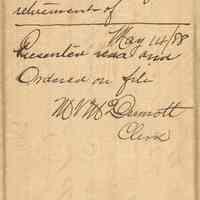 retirement of
May 14/88
Presented read and
Ordered on file
W W McDermott
Clerk